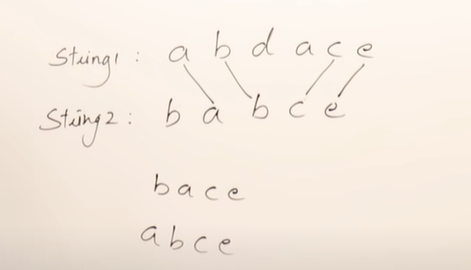 String1 : a b d a c e
String2 : b a b c e
b a c e
a b c e